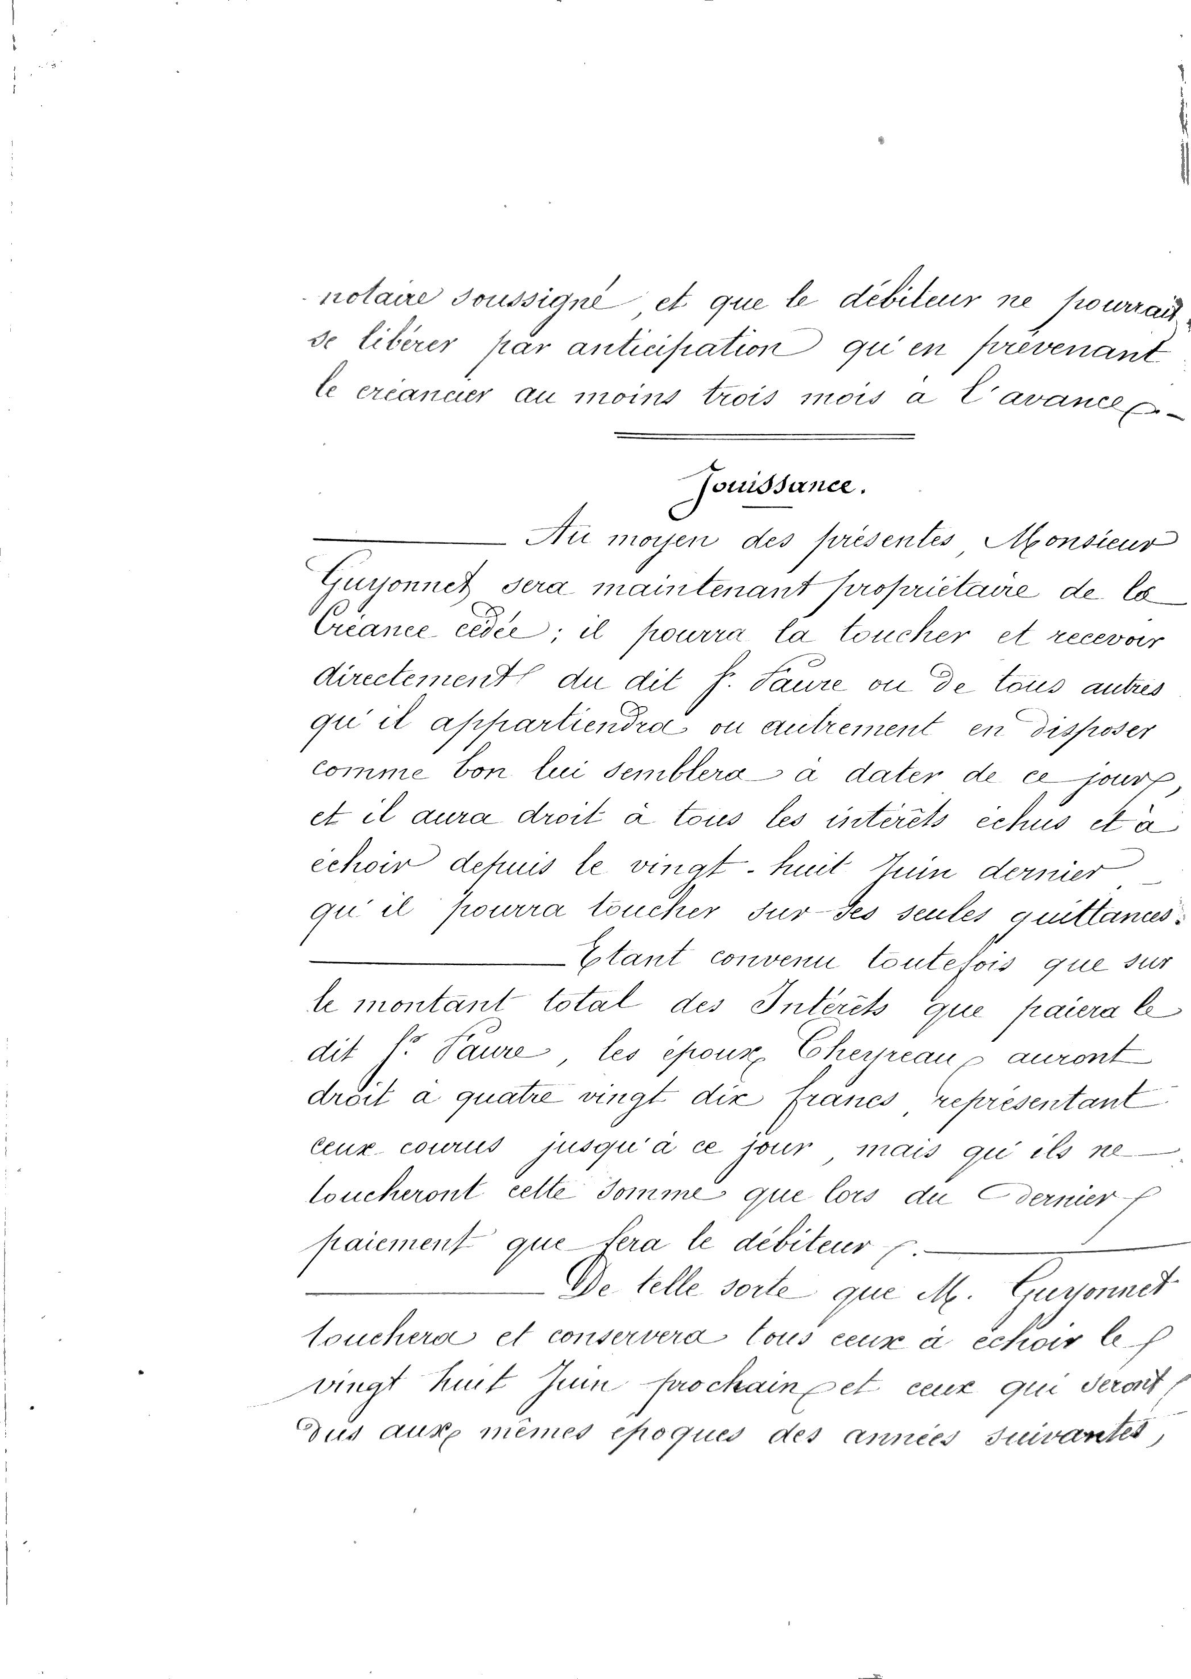 notaire soussigné, et que le débiteur ne pourrait
se libérer par anticipation qu'en prévenant
le créancier au moins trois mois à l'avance.
Jouissance.
Au moyen des présentes, Monsieur
Guyonnet sera maintenant propriétaire de la
Créance cédée ; il pourra la toucher et recevoir
directement du dit Sr. Faure ou de tous autres
qu'il appartiendra ou autrement en disposer
comme bon lui semblera à dater de ce jour,
et il aura droit à tous les intérêts échus et à
échoir depuis le vingt-huit Juin dernier
qu'il pourra toucher sur ses seules quittances.
Etant convenu toutefois que sur
le montant total des Intérêts que paiera le
dit Sr. Faure, les époux Cheyreau auront
droit à quatre vingt dix francs, représentant
ceux courus jusqu'à ce jour, mais qu'ils ne
toucheront cette somme que lors du dernier
paiement que fera le débiteur.
De telle sorte que M. Guyonnet
touchera et conservera tous ceux à échoir le
vingt huit Juin prochain et ceux qui seront
dus aux mêmes époques des années suivantes,